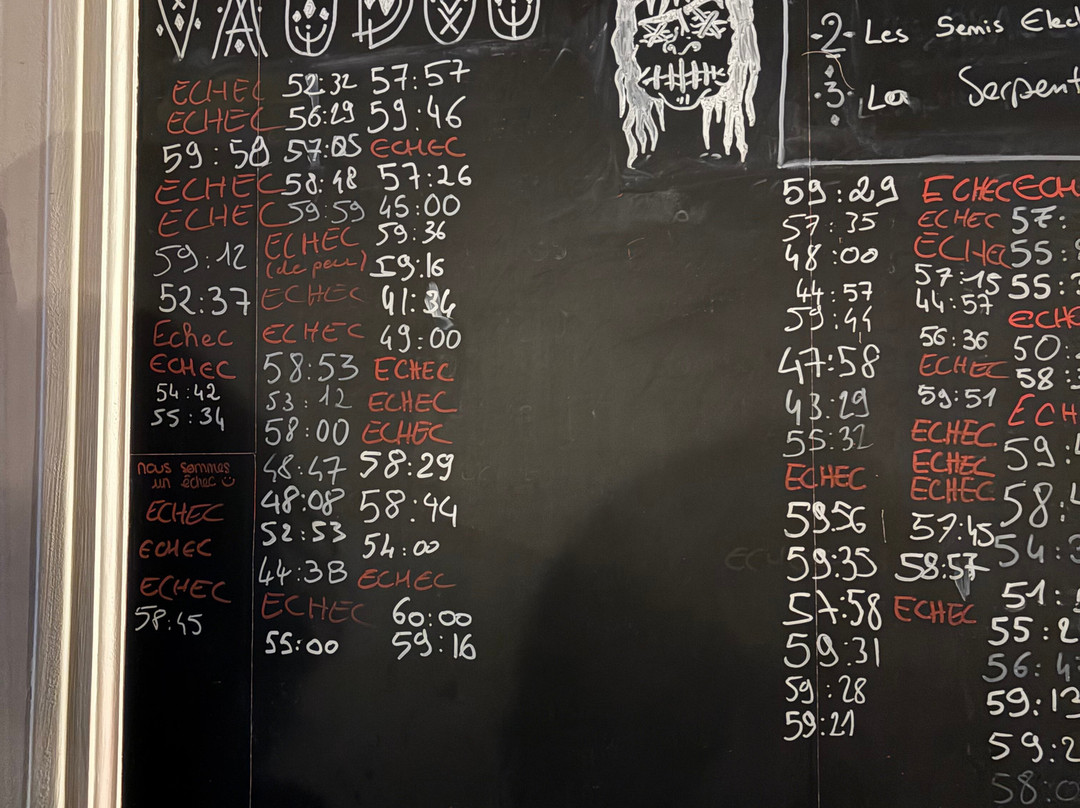 VAUDOU
ECHEC
ECHEC
59:50
ECHEC
ECHEC
59:12
52:37
Echec
ECHEC
54:42
55:34
nous sommes
un échec
ECHEC
ECHEC
ECHEC
58:45
52:32
56:29
57:05
58:48
59:59
ECHEC
(de peu)
ECHEC
ECHEC
58:53
53:12
58:00
48:47
48:08
52:53
44:38
ECHEC
55:00
57:57
59:46
ECHEC
57:26
45:00
59:36
59:16
41:34
49:00
ECHEC
ECHEC
ECHEC
58:29
58:44
54:00
ECHEC
60:00
59:16
-2- Les Semis Elec
-3- La Serpent
59:29
57:35
48:00
44:57
59:44
47:58
43:29
55:32
ECHEC
59:56
59:35
57:58
59:31
59:28
59:21
ECHEC
ECHEC
ECHEC
57:15
44:57
56:36
ECHEC
59:51
ECHEC
ECHEC
ECHEC
57:45
58:57
ECHEC
ECH
57:
55:
55:
ECHE
50:
58:
ECH
59:
58:
54:
51:
55:2
56:4
59:13
59:2
58:0